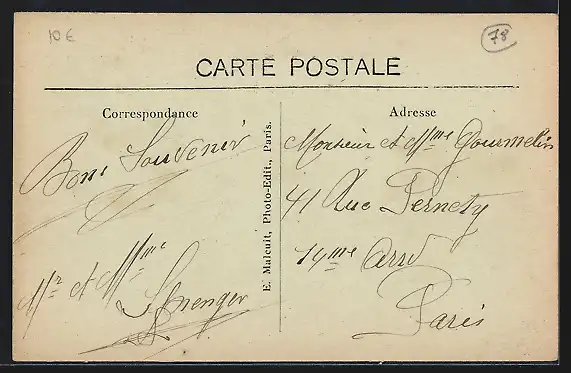 10 €
78
CARTE POSTALE
Correspondance
Bons Souvenir
Mr et Mme
Sprenger
E. Malcuit, Photo-Edit., Paris.
Adresse
Monsieur et Mme Gourmelin
41 Rue Pernety
14me Arrd
Paris